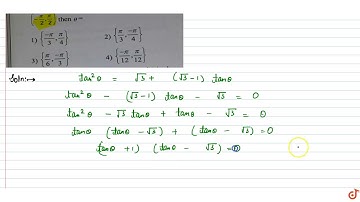 [-π/2, π/2] then θ =
1) {-π/3, π/4} 2) {π/3, -π/4}
3) {π/6, -π/3} 4) {-π/12, π/12}
Soln:→ tan²θ = √3 + (√3-1) tanθ
tan²θ - (√3-1) tanθ - √3 = 0
tan²θ - √3 tanθ + tanθ - √3 = 0
tanθ (tanθ - √3) + (tanθ - √3) = 0
(tanθ + 1) (tanθ - √3) = 0